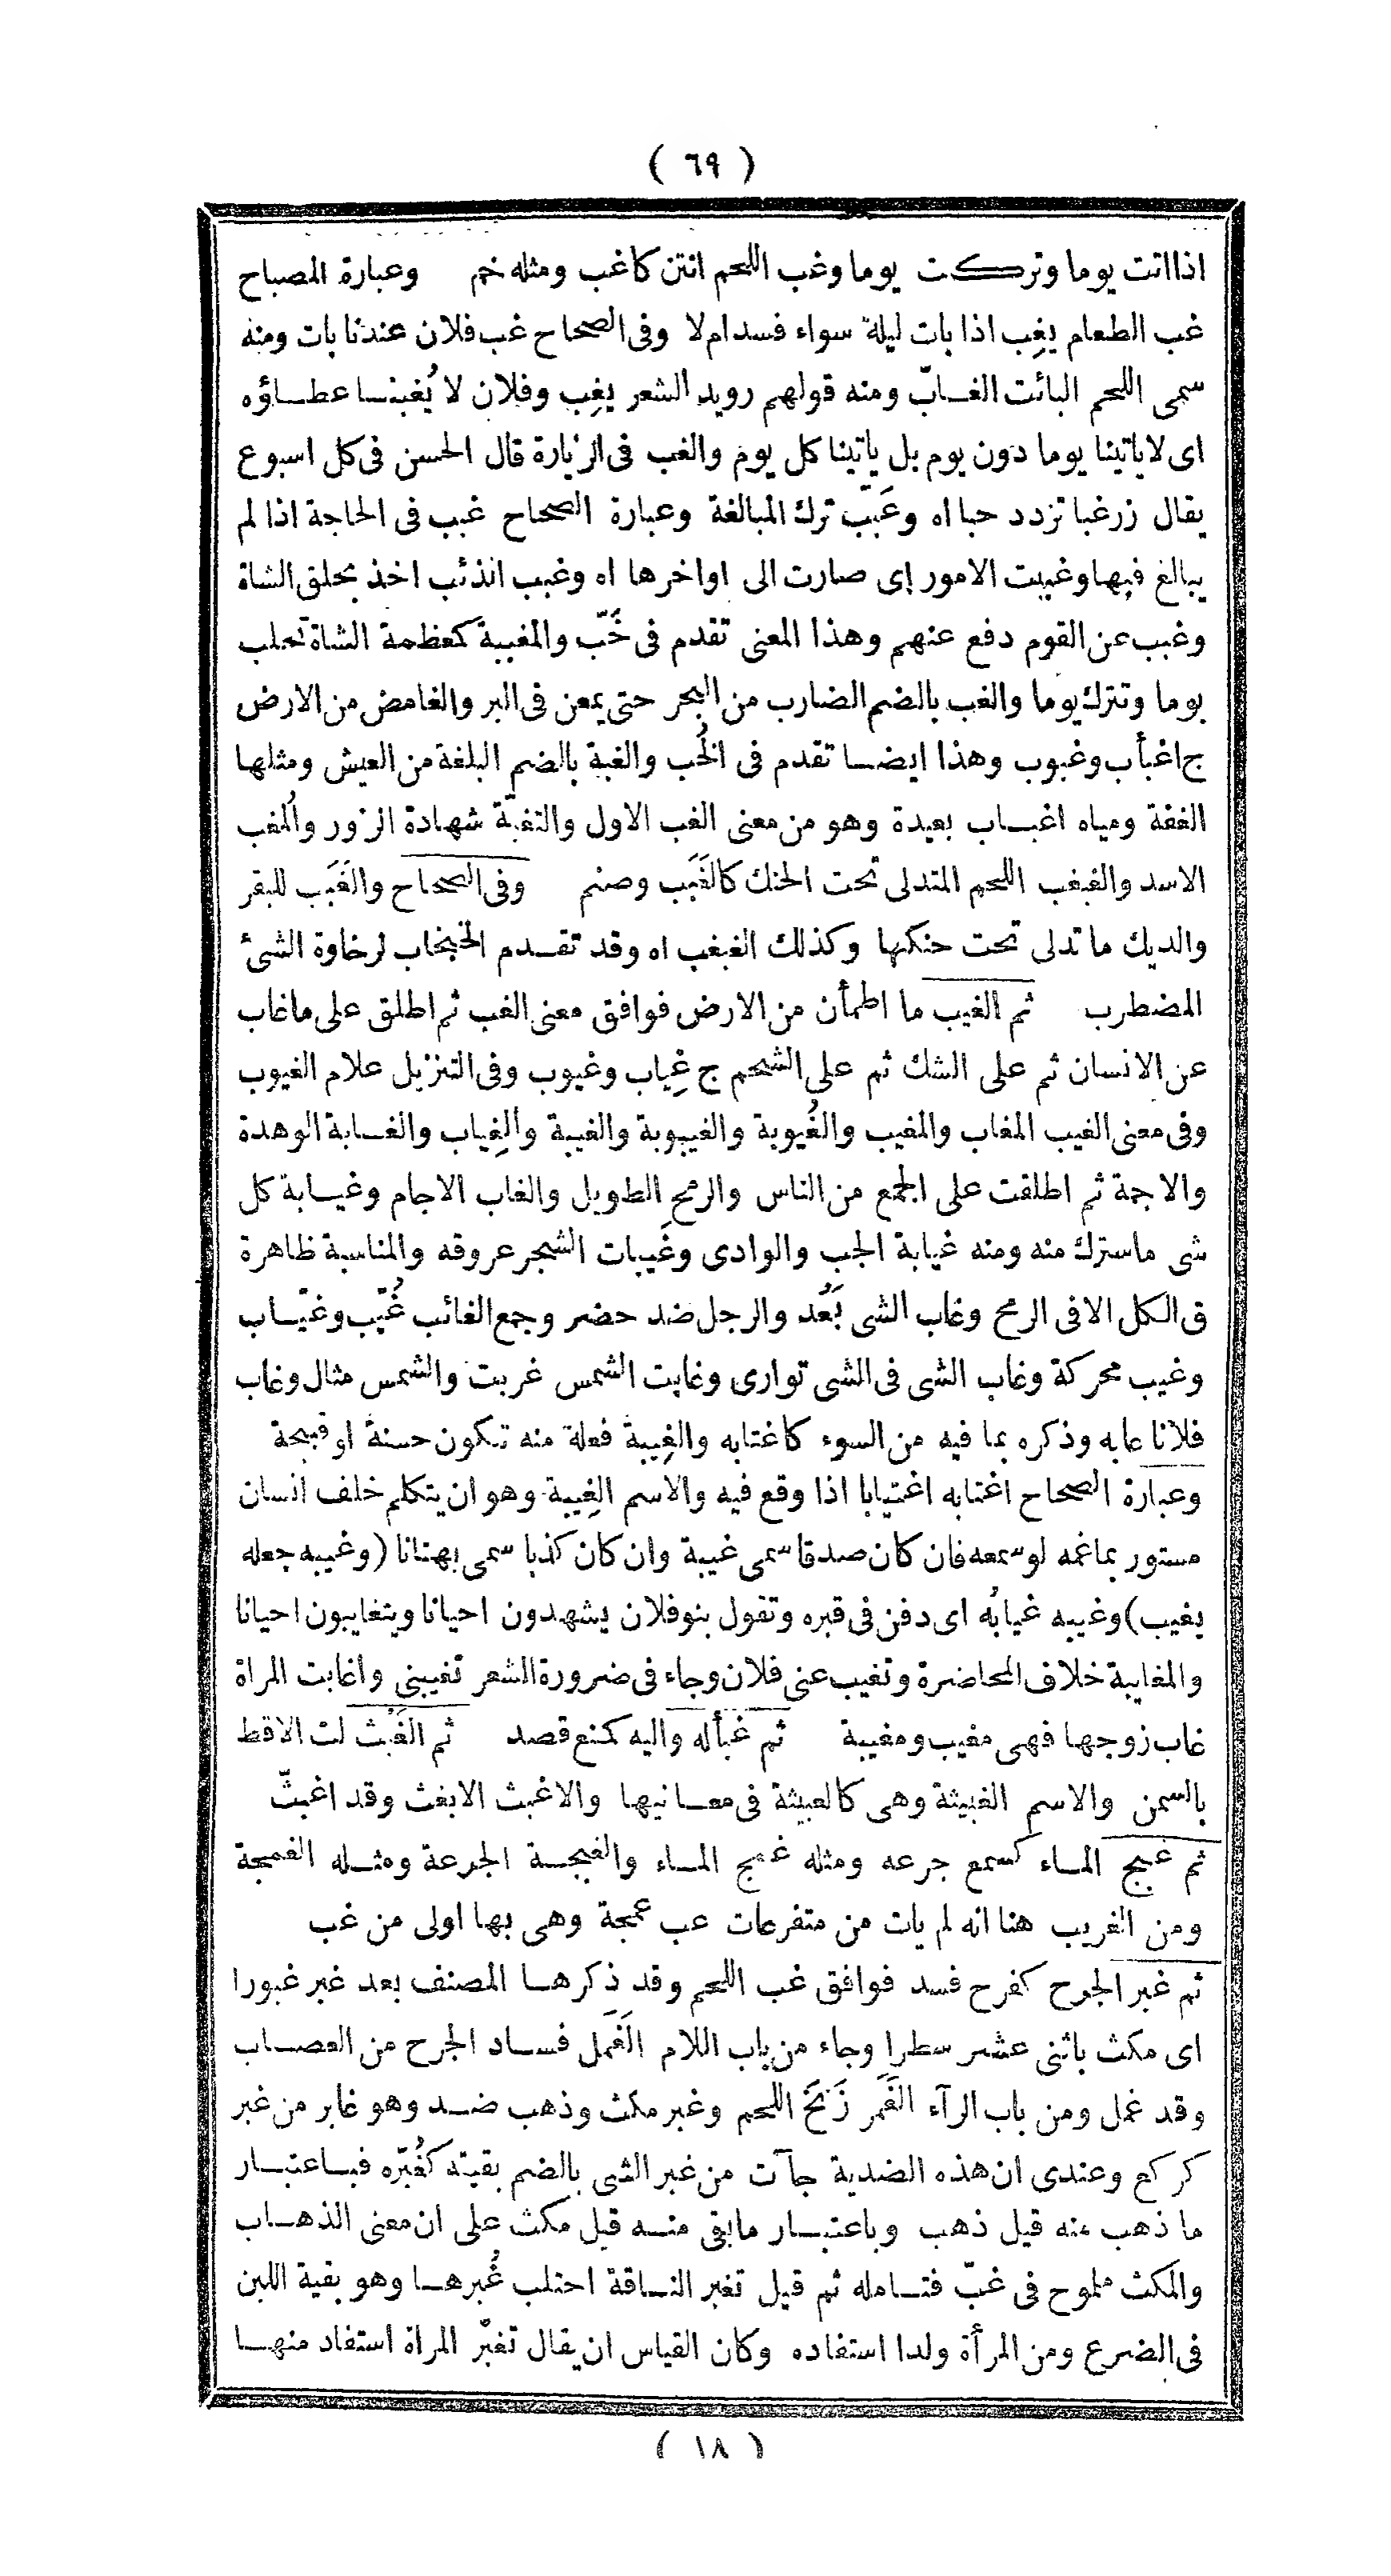 ( ٦٩ )
اذا اتت يوما وتركت يوما وغب اللحم انتن كاغب ومثله خم وعبارة المصباح
غب الطعام يغِب اذا بات ليلة سواء فسد ام لا وفى الصحاح غب فلان عندنا بات ومنه
سمى اللحم البائت الغـابّ ومنه قولهم رويد الشعر يغِب وفلان لا يُغبنـا عطـاؤه
اى لا ياتينا يوما دون يوم بل ياتينا كل يوم والغب فى الزيارة قال الحسن فى كل اسبوع
يقال زرغبا تزدد حبا اه وغَبّب ترك المبالغة وعبارة الصحاح غبب فى الحاجة اذا لم
يبالغ فيها وغببت الامور اى صارت الى اواخرها اه وغبب الذئب اخذ بحلق الشاة
وغبب عن القوم دفع عنهم وهذا المعنى تقدم فى خَبّ والمغببة كمعظمة الشاة تحلب
يوما وتترك يوما والغب بالضم الضارب من البحر حتى يمعن فى البر والغامض من الارض
ج اغبأب وغبوب وهذا ايضـا تقدم فى الخُب والغبة بالضم البلغة من العيش ومثلها
الغفة ومياه اغبـاب بعيدة وهو من معنى الغب الاول والتغبّة شهادة الزور والمُغب
الاسد والغبغب اللحم المتدلى تحت الحنك كالغَبَب وصنم وفى الصحاح والغَبَب للبقر
والديك ما تدلى تحت حنكها وكذلك الغبغب اه وقد تقـدم الخبخاب لرخاوة الشئ
المضطرب ثم الغيب ما اطمأن من الارض فوافق معنى الغب ثم اطلق على ما غاب
عن الانسان ثم على الشك ثم على الشحم ج غِياب وغيوب وفى التنزيل علام الغيوب
وفى معنى الغيب المغاب والمغيب والغُيوبة والغيبوبة والغيبة والغِياب والغـابة الوهدة
والاجمة ثم اطلقت على الجمع من الناس والرمح الطويل والغاب الاجام وغيـابة كل
شى ما سترك منه ومنه غيابة الجب والوادى وغَيبات الشجر عروقه والمناسبة ظاهرة
فى الكل الا فى الرمح وغاب الشى بَعُد والرجل ضد حضر وجمع الغائب غُيّب وغيّـاب
وغيب محركة وغاب الشى فى الشى توارى وغابت الشمس غربت والشمس مثال وغاب
فلانا عابه وذكره بما فيه من السوء كاغتابه والغِيبة فعلة منه تكون حسنة او قبيحة
وعبارة الصحاح اغتابه اغتيابا اذا وقع فيه والاسم الغِيبة وهو ان يتكلم خلف انسان
مستور بما غمه لو سمعه فان كان صدقا سمى غيبة وان كان كذبا سمى بهتانا (وغيبه جعله
يغيب) وغيبه غيابُه اى دفن فى قبره وتقول بنو فلان يشهدون احيانا ويتغايبون احيانا
والمغايبة خلاف المحاضرة وتغيب عنى فلان وجاء فى ضرورة الشعر تغيبنى واغابت المراة
غاب زوجها فهى مغيب ومغيبة ثم غبأ له واليه كمنع قصد ثم الغَبْث لت الاقط
بالسمن والاسم الغبيثة وهى كالعبيثة فى معـانيها والاغبث الابغث وقد اغبثّ
ثم غبج المـاء كسمع جرعه ومثله غمج المـاء والغبجـة الجرعة ومثـله الغمجة
ومن الغريب هنا انه لم يات من متفرعات عب عمجة وهى بها اولى من غب
ثم غبر الجرح كفرح فسد فوافق غب اللحم وقد ذكرهـا المصنف بعد غبر غبورا
اى مكث باثنى عشر سطرا وجاء من باب اللام الغَمَل فسـاد الجرح من العصـاب
وقد غمل ومن باب الرآء الغَمَر زَنَخَ اللحم وغبر مكث وذهب ضـد وهو غابر من غبر
كركع وعندى ان هذه الضدية جآت من غبر الشى بالضم بقيته كغُبّره فبـاعتبـار
ما ذهب منه قيل ذهب وباعتبـار ما بقى منـه قيل مكث على ان معنى الذهـاب
والمكث ملموح فى غبّ فتـامله ثم قيل تغبر النـاقة احتلب غُبرهـا وهو بقية اللبن
فى الضرع ومن المرأة ولدا استفاده وكان القياس ان يقال تغبّر المراة استفاد منهـا
( ١٨ )